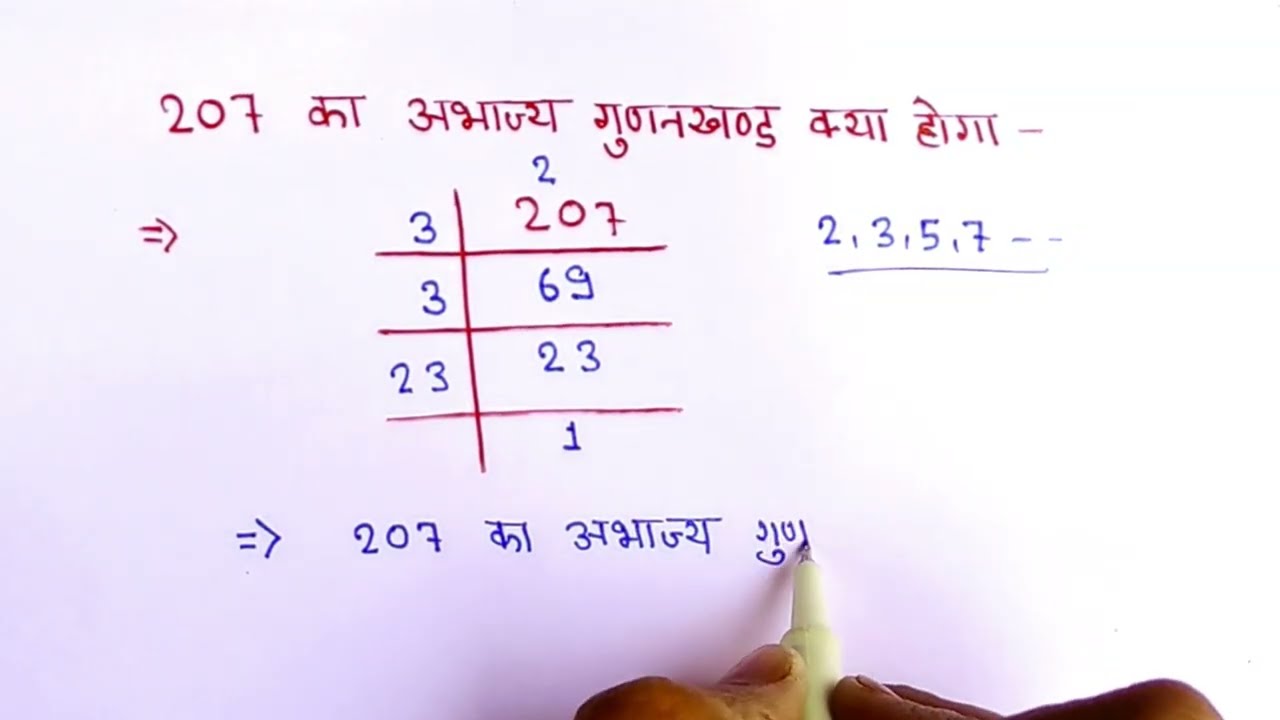 207 का अभाज्य गुणनखण्ड क्या होगा -
2
⇒ 3 207 2, 3, 5, 7 - -
3 69
23 23
1
⇒ 207 का अभाज्य गुण